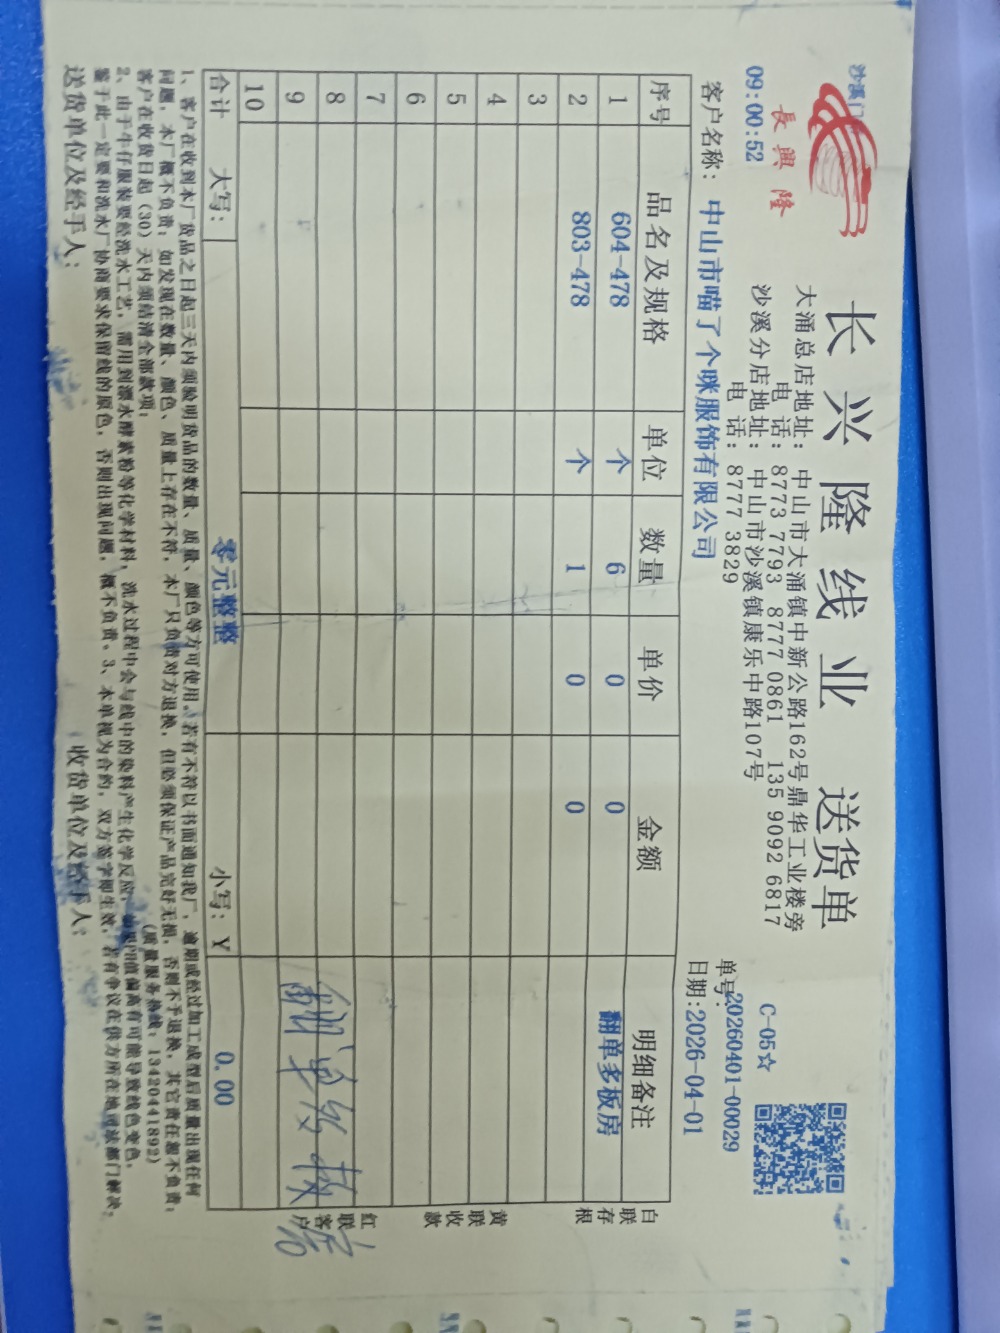 長興隆
长兴隆线业 送货单
大涌总店地址：中山市大涌镇中新公路162号鼎华工业楼旁
电 话：8773 7793 8777 0861 135 9092 6817
沙溪分店地址：中山市沙溪镇康乐中路107号
电 话：8777 3829
沙溪门
09:00:52
C-05☆
单号：20260401-00029
客户名称：中山市喵了个咪服饰有限公司
日期：2026-04-01
序号 品名及规格 单位 数量 单价 金额 明细备注
1 604-478 个 6 0 0 翻单多板房
2 803-478 个 1 0 0
3
4
5
6
7
8
9
10
翻单多板房
合计 大写： 零元整整 小写：￥ 0.00
白联存根
黄联收款
红联客户
1、客户在收到本厂货品之日起三天内须验明货品的数量、质量、颜色等方可使用。若有不符以书面通知我厂，逾期或经过加工成型后质量出现任何
问题，本厂概不负责；如发现在数量、颜色、质量上存在不符，本厂只负责对方退换，但必须保证产品完好无损，否则不予退换，其它责任恕不负责；
客户在收货日起（30）天内须结清全部款项； （质量服务热线：13420441892）
2、由于牛仔服装要经洗水工艺，需用到漂水酵素粉等化学材料，洗水过程中会与线中的染料产生化学反应，如果PH值偏高有可能导致线色变色，
鉴于此一定要和洗水厂协商要求保留线的原色，否则出现问题，概不负责。3、本单视为合约，双方签字即生效，若有争议在供方所在地司法部门解决；
送货单位及经手人： 收货单位及经手人：